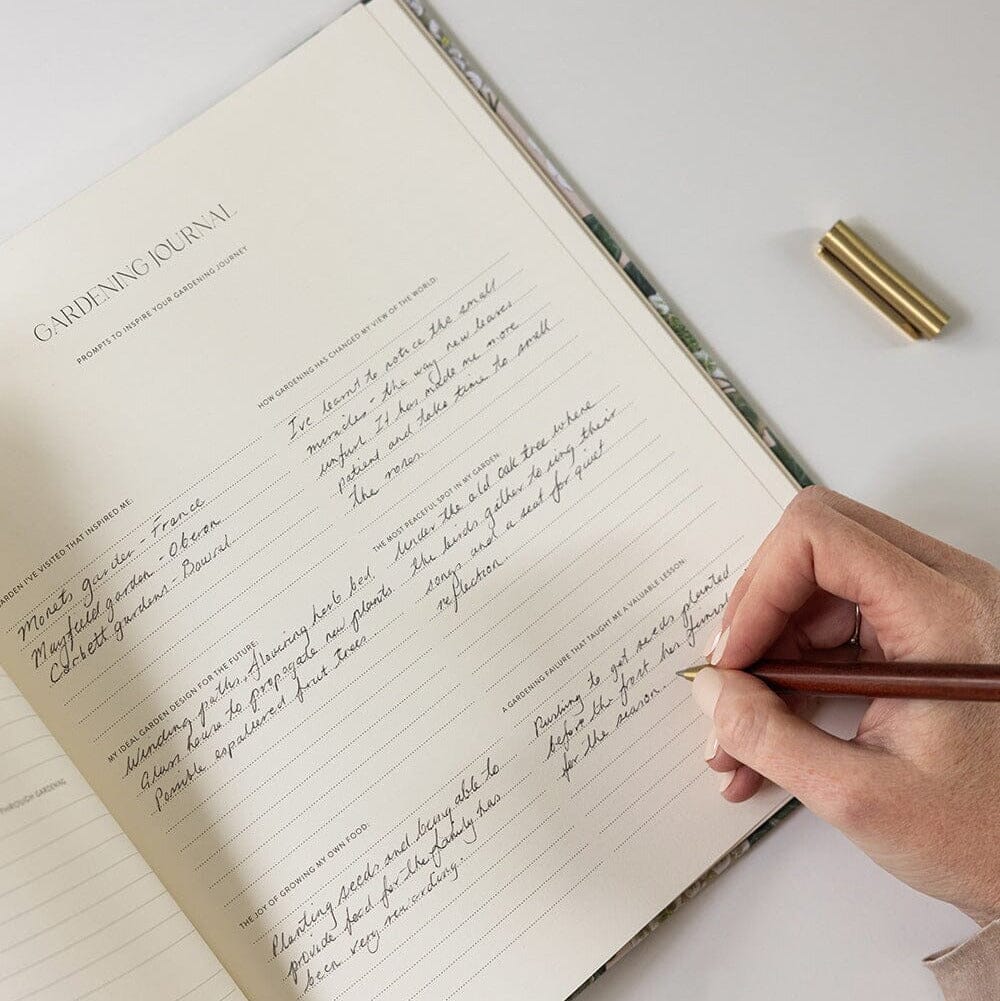 GARDENING JOURNAL
PROMPTS TO INSPIRE YOUR GARDENING JOURNEY
GARDEN I'VE VISITED THAT INSPIRED ME:
Monets garden - France
Mayfield garden - Oberon
Corbett gardens - Bowral
MY IDEAL GARDEN DESIGN FOR THE FUTURE:
Winding paths, flowering herb bed.
Glass house to propagate new plants
Possible espaliered fruit trees
THE JOY OF GROWING MY OWN FOOD:
Planting seeds and being able to
provide food for the family has
been very rewarding.
HOW GARDENING HAS CHANGED MY VIEW OF THE WORLD:
I've learnt to notice the small
miracles - the way new leaves
unfurl. It has made me more
patient and take time to smell
the roses.
THE MOST PEACEFUL SPOT IN MY GARDEN:
Under the old oak tree where
the birds gather to sing their
songs and a seat for quiet
reflection.
A GARDENING FAILURE THAT TAUGHT ME A VALUABLE LESSON:
Rushing to get seeds planted
before the frost has finish
for the season.
THROUGH GARDENING